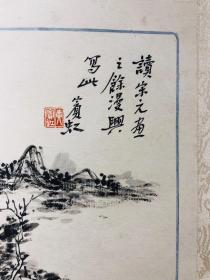 讀宋元畫
之餘漫興
寫此 賓虹